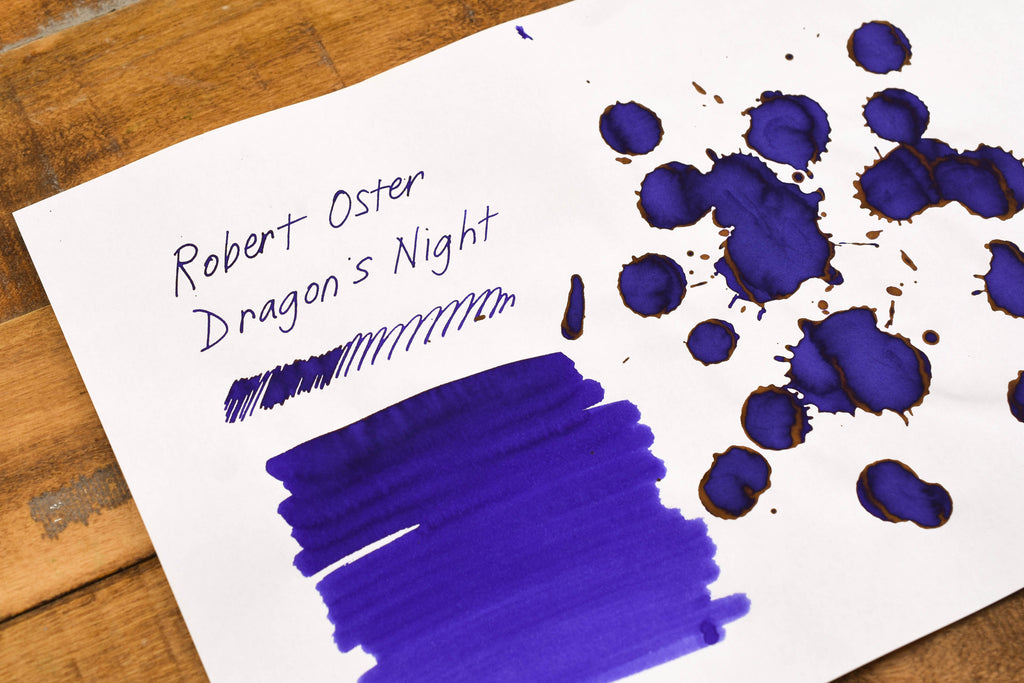 Robert Oster
Dragon's Night